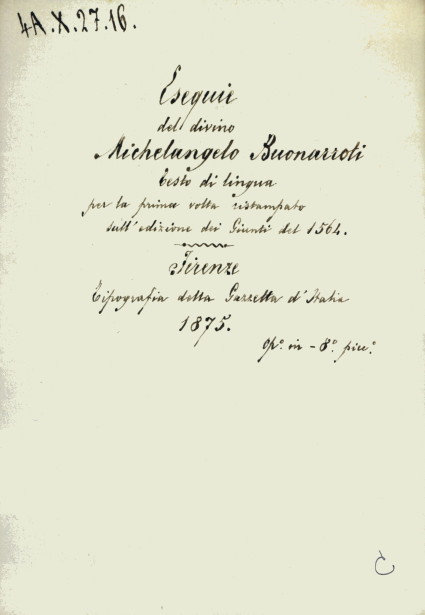 4A.X.27.16.
Esequie
del divino
Michelangelo Buonarroti
testo di lingua
per la prima volta ristampato
sull'edizione dei Giunti del 1564.
Firenze
Tipografia della Gazzetta d'Italia
1875.
op.º in - 8.º picc.º
C